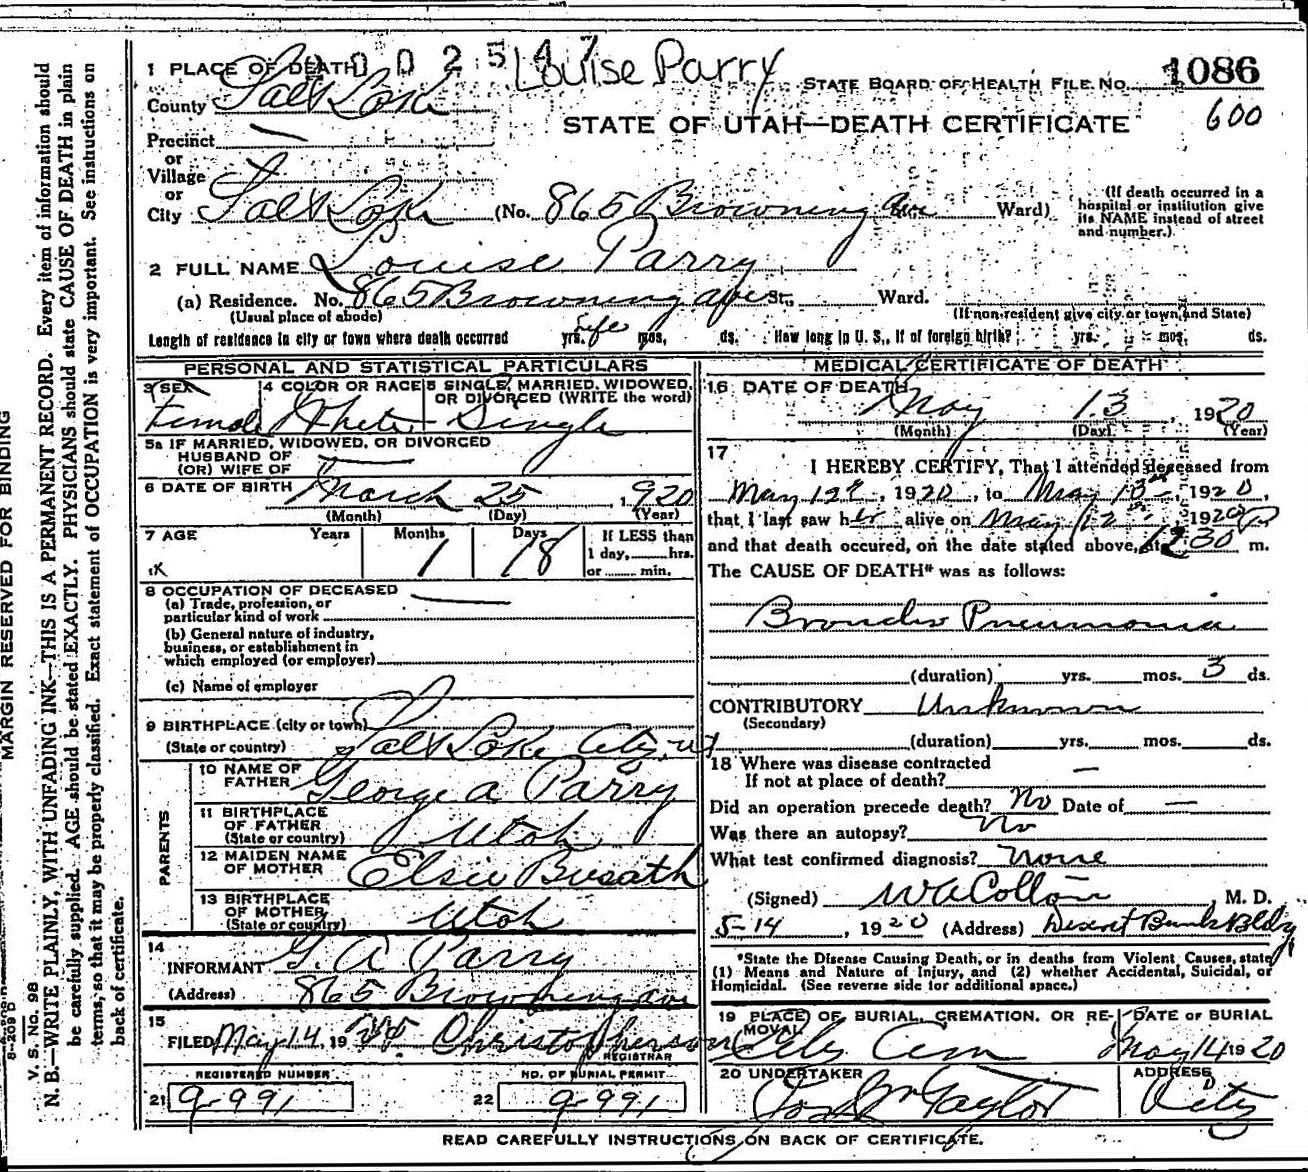 0 0 2 5 4 7 Louise Parry
1 PLACE OF DEATH
STATE BOARD OF HEALTH FILE NO. 1086
County Salt Lake
STATE OF UTAH—DEATH CERTIFICATE 600
Precinct —
or
Village
or
City Salt Lake (No. 865 Browning Ave Ward)
(If death occurred in a hospital or institution give its NAME instead of street and number.)
2 FULL NAME Louise Parry
(a) Residence. No. 865 Browning ave St., Ward.
(Usual place of abode) (If non-resident give city or town and State)
Length of residence in city or town where death occurred yrs. Life mos. ds. How long in U. S., if of foreign birth? yrs. mos. ds.
PERSONAL AND STATISTICAL PARTICULARS
3 SEX 4 COLOR OR RACE 5 SINGLE, MARRIED, WIDOWED, OR DIVORCED (WRITE the word)
Female White Single
5a IF MARRIED, WIDOWED, OR DIVORCED
HUSBAND OF
(OR) WIFE OF —
6 DATE OF BIRTH March 25 1920
(Month) (Day) (Year)
7 AGE Years Months Days If LESS than
1 day, hrs.
or min.
1 18
8 OCCUPATION OF DECEASED —
(a) Trade, profession, or
particular kind of work
(b) General nature of industry,
business, or establishment in
which employed (or employer)
(c) Name of employer
9 BIRTHPLACE (city or town)
(State or country) Salt Lake City, Ut
PARENTS
10 NAME OF FATHER George A Parry
11 BIRTHPLACE OF FATHER
(State or country) Utah
12 MAIDEN NAME OF MOTHER Elsie Busath
13 BIRTHPLACE OF MOTHER
(State or country) Utah
14
INFORMANT G. A Parry
(Address) 865 Browning ave
15
FILED May 14, 19 Christopherson
REGISTRAR
REGISTERED NUMBER NO. OF BURIAL PERMIT
21 9-991 22 9-991
MEDICAL CERTIFICATE OF DEATH
16 DATE OF DEATH
May 13, 1920
(Month) (Day) (Year)
17
I HEREBY CERTIFY, That I attended deceased from
May 12th, 1920, to May 13th, 1920,
that I last saw her alive on May 12th, 1920
and that death occured, on the date stated above, at 12:30 P m.
The CAUSE OF DEATH* was as follows:
Broncho Pneumonia
(duration) yrs. mos. 3 ds.
CONTRIBUTORY Unknown
(Secondary)
(duration) yrs. mos. ds.
18 Where was disease contracted
If not at place of death? —
Did an operation precede death? No Date of —
Was there an autopsy? No
What test confirmed diagnosis? None
(Signed) M. D.
5-14, 1920 (Address) Deseret Bank Bldg
*State the Disease Causing Death, or in deaths from Violent Causes, state
(1) Means and Nature of Injury, and (2) whether Accidental, Suicidal, or
Homicidal. (See reverse side for additional space.)
19 PLACE OF BURIAL, CREMATION, OR REMOVAL DATE OF BURIAL
City Cem May 14 1920
20 UNDERTAKER ADDRESS
Jos Wm Taylor City
READ CAREFULLY INSTRUCTIONS ON BACK OF CERTIFICATE.
MARGIN RESERVED FOR BINDING
V. S. No. 98
N. B.—WRITE PLAINLY, WITH UNFADING INK—THIS IS A PERMANENT RECORD. Every item of information should
be carefully supplied. AGE should be stated EXACTLY. PHYSICIANS should state CAUSE OF DEATH in plain
terms, so that it may be properly classified. Exact statement of OCCUPATION is very important. See instructions on
back of certificate.